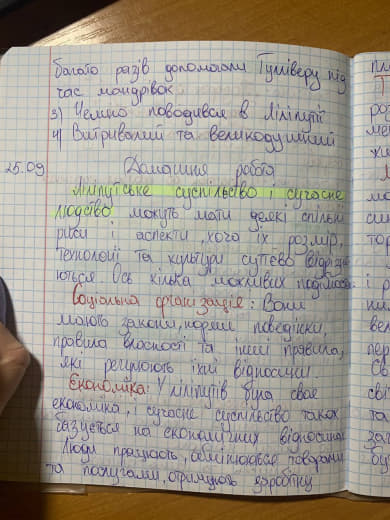 багато разів допомогали Гуліверу під
час мандрівок
3) Чемно поводився в Ліліпутії
4) Витривалий та великодушний
25.09 Домашня робота
Ліліпутське суспільство і сучасне
людство можуть мати деякі спільні
риси і аспекти, хоча їх розмір,
технології та культури суттєво відрізня
ються. Ось кілька можливих подібнос
Соціальна організація: Вони
мають закони, норми поведінки,
правила власності та інші правила,
які регулюють їхні відносини.
Економіка: У ліліпутів була своя
економіка, і сучасне суспільство також
базується на економічних відносинах
Люди працюють, обмінюються товарами
та послугами, отримують заробітну